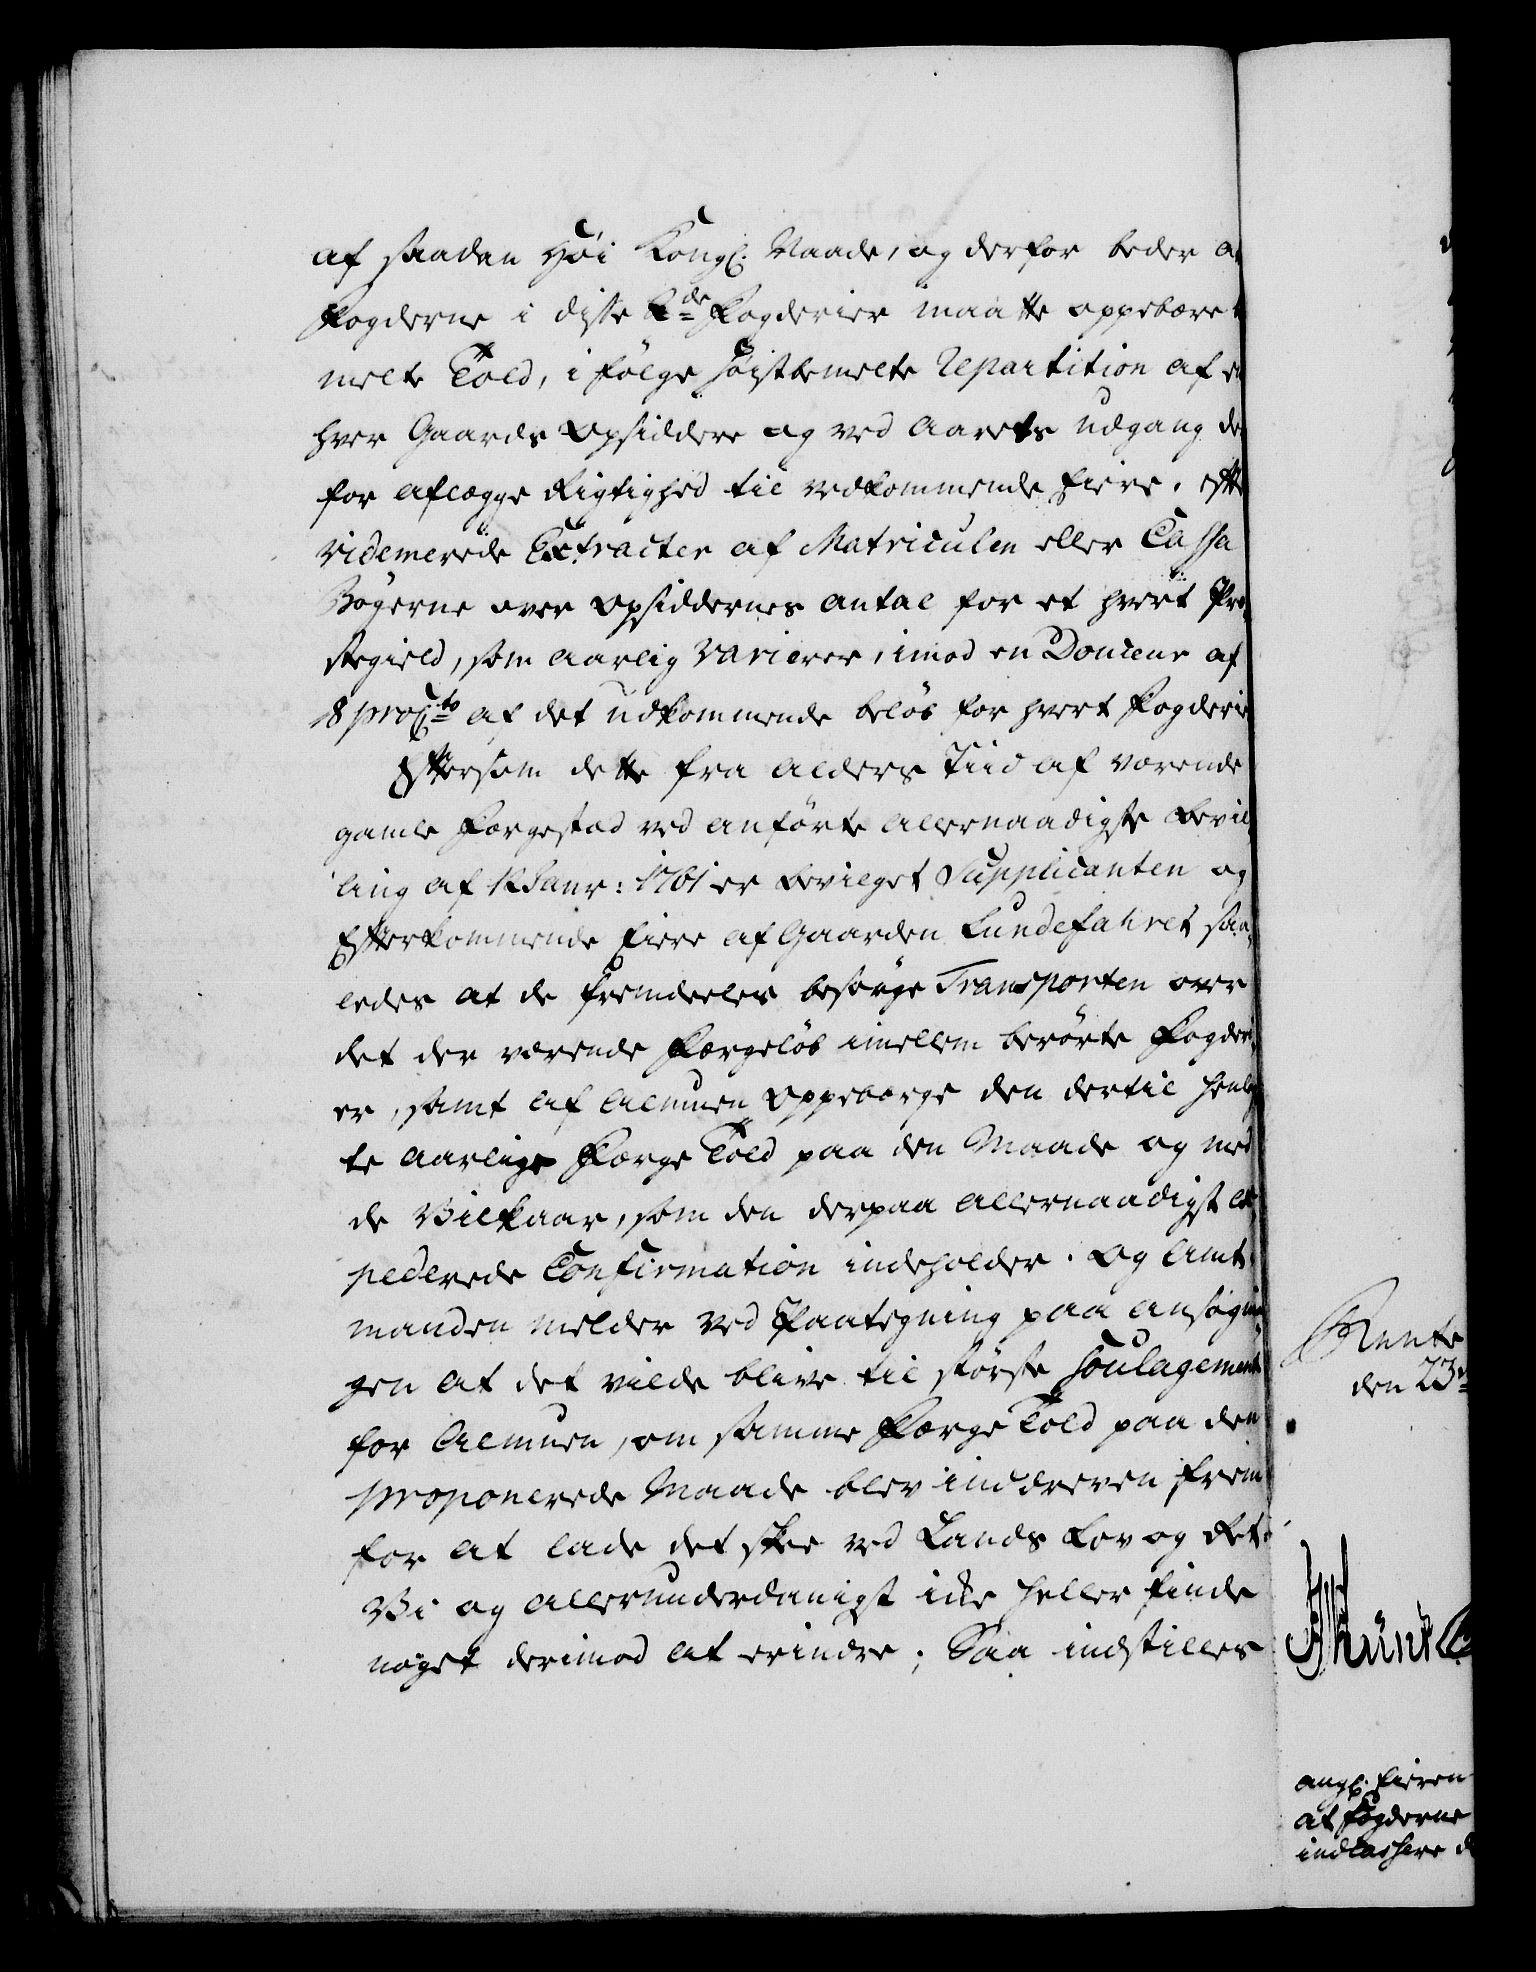 af saadan Høi Kongl. Naade, og derfor beder at
Fogderne i disse 2de Fogderier maatte oppebære
melte Told, i følge høistbemelte Repartition af en
hver Gaards Opsiddere og ved Aarets udgang der
for aflægge Rigtighed til vedkommende Eiere, efter
videmerede Extracter af Matriculen eller Cassa
Bøgerne over Opsiddernes antal for et hvert Præ
stegield, som aarlig varierer, imod en Douceur af
8 proCto af det udkommende beløb for hvert Fogderie
Eftersom dette fra Alders Tiid af værende
gamle Færgestæd ved anførte allernaadigste Bevil
ling af 12 Janr: 1761 er bevilget Supplicanten og
Efterkommende Eiere af Gaarden Lundefahret saa
ledes at de fremdeeles besørge Transporten over
det der værende Færgeløb imellem berørte Fogderi
er, samt af Almuen Oppebærge den dertil henlag
te aarlige Færge Told paa den Maade og med
de Vilkaar, som den derpaa allernaadigst ex
pederede Confirmation indeholder. Og Amt
manden melder ved Paategning paa ansøgnin
gen at det vilde blive til største Soulagement
for Almuen, om samme Færge Told paa den
proponerede Maade blev inddreven frem
for at lade det skee ved Lands Lov og Ret:
Vi og allerunderdanigst ikke heller finde
noget derimod at erindre; Saa indstilles
Rente
den 23de
angl. Eieren
at Fogderne
indkassere d